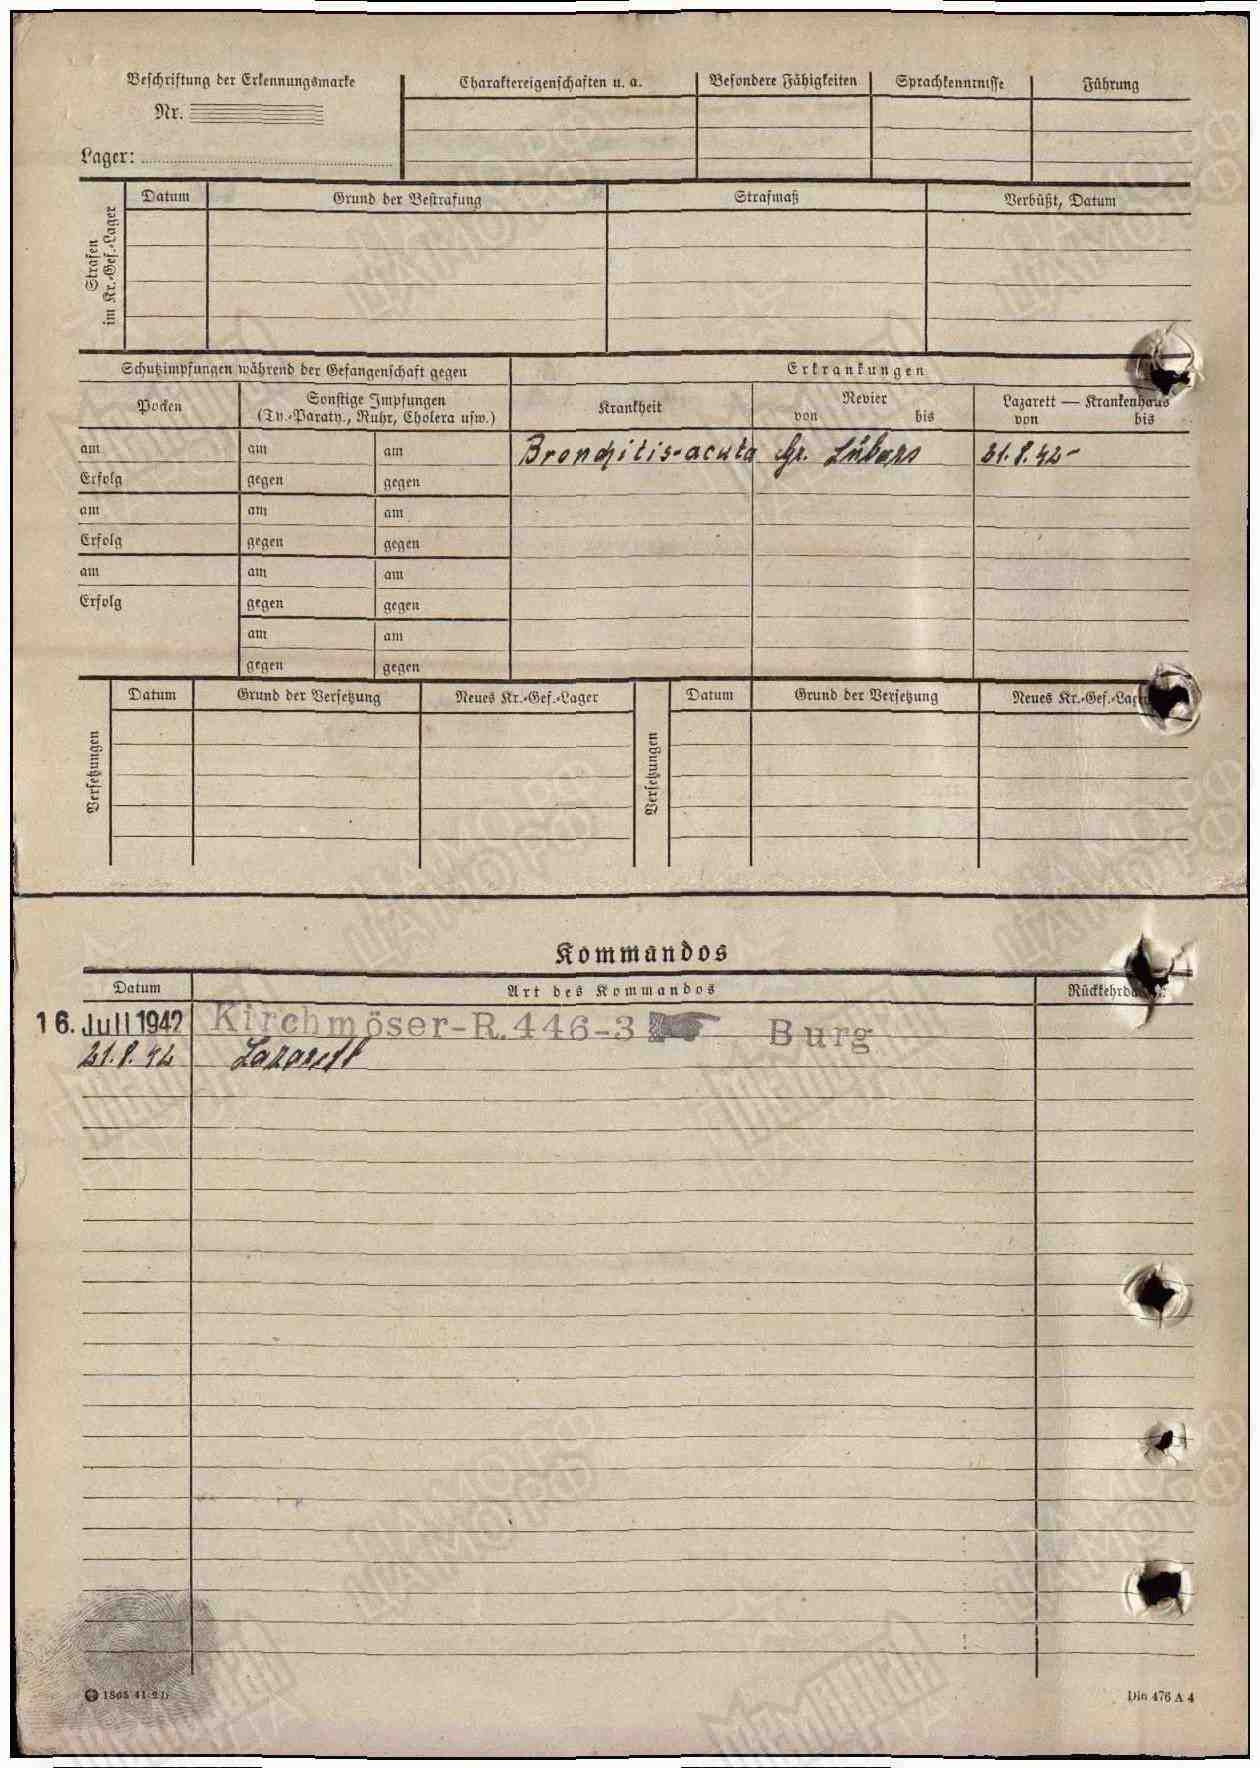 Beschriftung der Erkennungsmarke
Nr.
Lager:
Charaktereigenschaften u. a.
Besondere Fähigkeiten
Sprachkenntnisse
Führung
Strafen
im Kr.-Gef.-Lager
Datum
Grund der Bestrafung
Strafmaß
Verbüßt, Datum
Schutzimpfungen während der Gefangenschaft gegen
Erkrankungen
Pocken
Sonstige Impfungen
(Ty.-Paraty., Ruhr, Cholera usw.)
Krankheit
Revier
von bis
Lazarett — Krankenhaus
von bis
am am am Bronchitis-acuta Gr. Lübars 21.8.42-
Erfolg gegen gegen
am am am
Erfolg gegen gegen
am am am
Erfolg gegen gegen
am am
gegen gegen
Versetzungen
Datum Grund der Versetzung Neues Kr.-Gef.-Lager
Versetzungen
Datum Grund der Versetzung Neues Kr.-Gef.-Lager
Kommandos
Datum Art des Kommandos
16. Juli 1942 Kirchmöser-R.446-3 Burg
21.8.42 Lazarett
Din 476 A 4
ЦАМО РФ
МЕМОРИАЛ